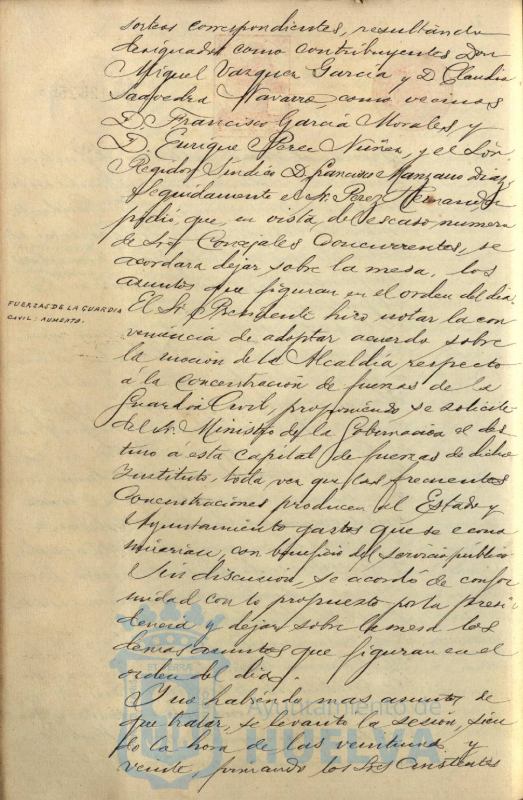 sorteos correspondientes, resultando
designados como contribuyentes Don
Miguel Vazquez Garcia y D. Claudio
Saavedra Navarro como vecinos
D. Francisco Garcia Morales y
D. Enrique Perez Nuñez, y el Sr.
Regidor Sindico D. Francisco Manzano Diaz,
Seguidamente el Sr. Perez Hernandez
pidió, que en vista del escaso numero
de Sres Concejales concurrentes, se
acordara dejar sobre la mesa, los
asuntos que figuran en el orden del dia.
FUERZAS DE LA GUARDIA
CIVIL: AUMENTO.
El Sr. Presidente hizo notar la con
veniencia de adoptar acuerdo sobre
la mocion de la Alcaldía respecto
á la concentración de fuerzas de la
Guardia Civil, proponiendo se solicite
del Sr. Ministro de la Gobernacion el des
tino á esta Capital de fuerzas de dicho
Instituto, toda vez que las frecuentes
Concentraciones producen al Estado y
Ayuntamiento gastos que se econo
mizarian, con beneficio del servicio publico
Sin discusion, se acordó de confor
midad con lo propuesto por la Presi
dencia y dejar sobre la mesa los
demas asuntos que figuran en el
orden del dia.
Y no habiendo mas asuntos de
que tratar, se levantó la sesión, sien
do la hora de las veintiuna y
veinte, firmando los Sres Asistentes
Ayuntamiento de
HUELVA